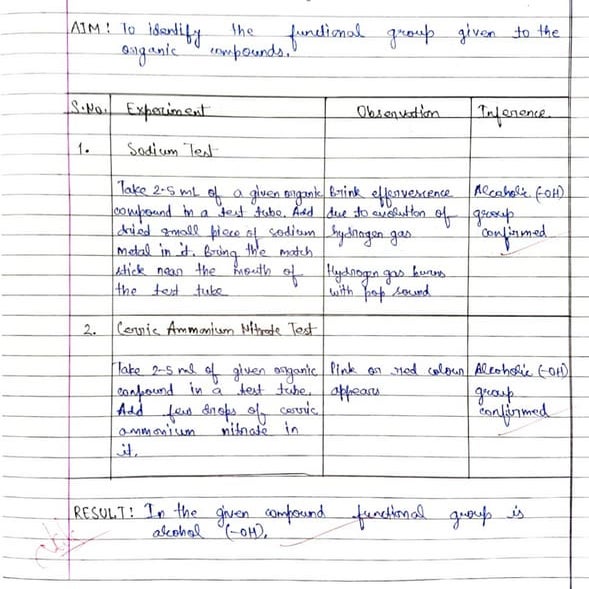 AIM: To identify the functional group given to the
organic compounds.
S.No. Experiment Observation Inference
1. Sodium Test
Take 2-5 mL of a given organic Brink effervescence Alcoholic (-OH)
compound in a test tube. Add due to evolution of group
dried small piece of sodium hydrogen gas confirmed
metal in it. Bring the match
stick near the mouth of Hydrogen gas burns
the test tube with pop sound
2. Cerric Ammonium Nitrate Test
Take 2-5 ml of given organic Pink or red colour Alcoholic (-OH)
compound in a test tube. appears group
Add few drops of cerric confirmed
ammonium nitrate in
it.
RESULT: In the given compound functional group is
alcohol (-OH).